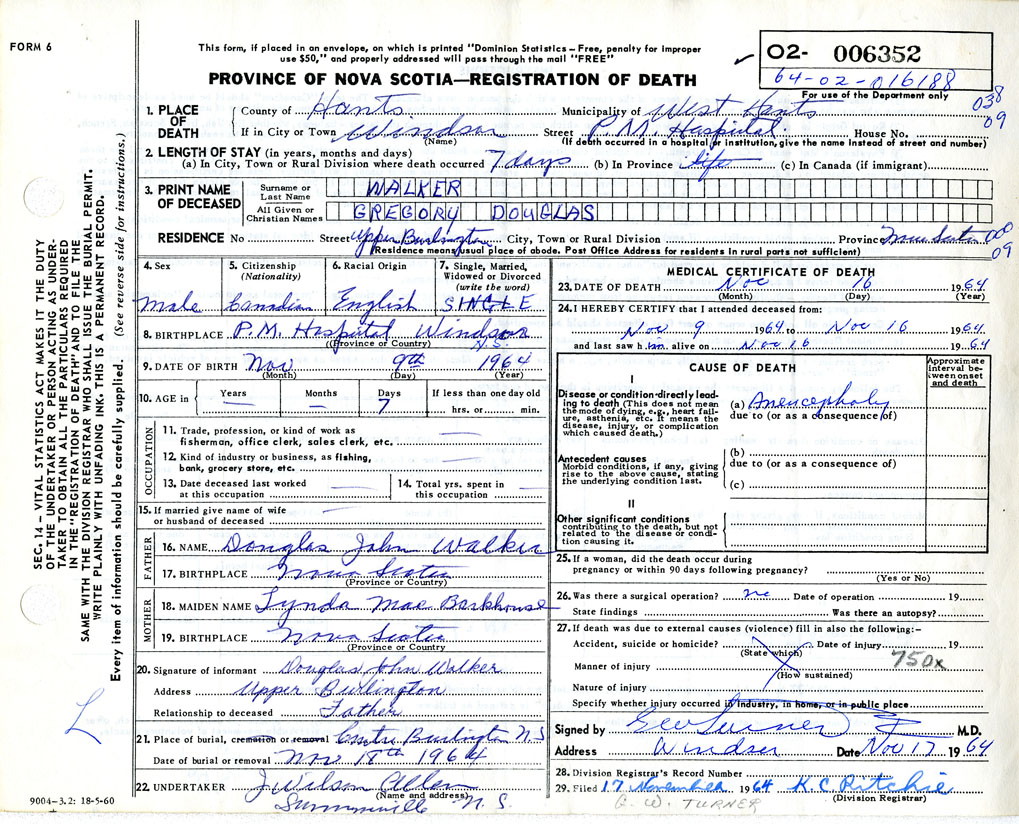 FORM 6
This form, if placed in an envelope, on which is printed "Dominion Statistics – Free, penalty for improper
use $50," and properly addressed will pass through the mail "FREE"
PROVINCE OF NOVA SCOTIA—REGISTRATION OF DEATH
02- 006352
64-02-016188
For use of the Department only
038
09
SEC. 14 – VITAL STATISTICS ACT MAKES IT THE DUTY
OF THE UNDERTAKER OR PERSON ACTING AS UNDER-
TAKER TO OBTAIN ALL THE PARTICULARS REQUIRED
IN THE "REGISTRATION OF DEATH" AND TO FILE THE
SAME WITH THE DIVISION REGISTRAR WHO SHALL ISSUE THE BURIAL PERMIT.
WRITE PLAINLY WITH UNFADING INK. THIS IS A PERMANENT RECORD.
Every item of information should be carefully supplied. (See reverse side for instructions.)
1. PLACE OF DEATH
County of Hants Municipality of West Hants
If in City or Town Windsor Street P.M. Hospital House No.
(Name) (If death occurred in a hospital or institution, give the name instead of street and number)
2. LENGTH OF STAY (in years, months and days)
(a) In City, Town or Rural Division where death occurred 7 days (b) In Province life (c) In Canada (if immigrant)
3. PRINT NAME OF DECEASED
Surname or Last Name WALKER
All Given or Christian Names GREGORY DOUGLAS
RESIDENCE No Street Upper Burlington City, Town or Rural Division Province Nova Scotia 000
09
(Residence means usual place of abode. Post Office Address for residents in rural parts not sufficient)
4. Sex
Male
5. Citizenship (Nationality)
Canadian
6. Racial Origin
English
7. Single, Married, Widowed or Divorced (write the word)
SINGLE
8. BIRTHPLACE P.M. Hospital Windsor N.S.
(Province or Country)
9. DATE OF BIRTH Nov 9th 1964
(Month) (Day) (Year)
10. AGE in Years — Months — Days 7 If less than one day old
hrs. or min.
OCCUPATION
11. Trade, profession, or kind of work as
fisherman, office clerk, sales clerk, etc. —
12. Kind of industry or business, as fishing,
bank, grocery store, etc. —
13. Date deceased last worked
at this occupation —
14. Total yrs. spent in
this occupation —
15. If married give name of wife
or husband of deceased —
FATHER
16. NAME Douglas John Walker
17. BIRTHPLACE Nova Scotia
(Province or Country)
MOTHER
18. MAIDEN NAME Lynda Mae Barkhouse
19. BIRTHPLACE Nova Scotia
(Province or Country)
20. Signature of informant Douglas John Walker
Address Upper Burlington
Relationship to deceased Father
L
21. Place of burial, cremation or removal Centre Burlington N S
Date of burial or removal Nov 18th 1964
22. UNDERTAKER J Wilson Allen
(Name and address)
Summerville N. S.
9004–3.2: 18-5-60
MEDICAL CERTIFICATE OF DEATH
23. DATE OF DEATH Nov 16 1964
(Month) (Day) (Year)
24. I HEREBY CERTIFY that I attended deceased from:
Nov 9 1964 to Nov 16 1964
and last saw him alive on Nov 16 1964
CAUSE OF DEATH
Approximate interval between onset and death
I
Disease or condition directly lead-
ing to death (This does not mean
the mode of dying, e.g., heart fail-
ure, asthenia, etc. It means the
disease, injury, or complication
which caused death.)
(a) Anencephaly
due to (or as a consequence of)
Antecedent causes
Morbid conditions, if any, giving
rise to the above cause, stating
the underlying condition last.
(b)
due to (or as a consequence of)
(c)
II
Other significant conditions
contributing to the death, but not
related to the disease or condi-
tion causing it.
25. If a woman, did the death occur during
pregnancy or within 90 days following pregnancy?
(Yes or No)
26. Was there a surgical operation? no Date of operation 19
State findings Was there an autopsy?
27. If death was due to external causes (violence) fill in also the following:–
Accident, suicide or homicide? Date of injury 19
(State which)
750x
Manner of injury
(How sustained)
Nature of injury
Specify whether injury occurred in industry, in home, or in public place
Signed by G W Turner M.D.
Address Windsor Date Nov 17 1964
28. Division Registrar's Record Number
29. Filed 17 November 1964 K. C. Ritchie
(Division Registrar)
G. W. TURNER